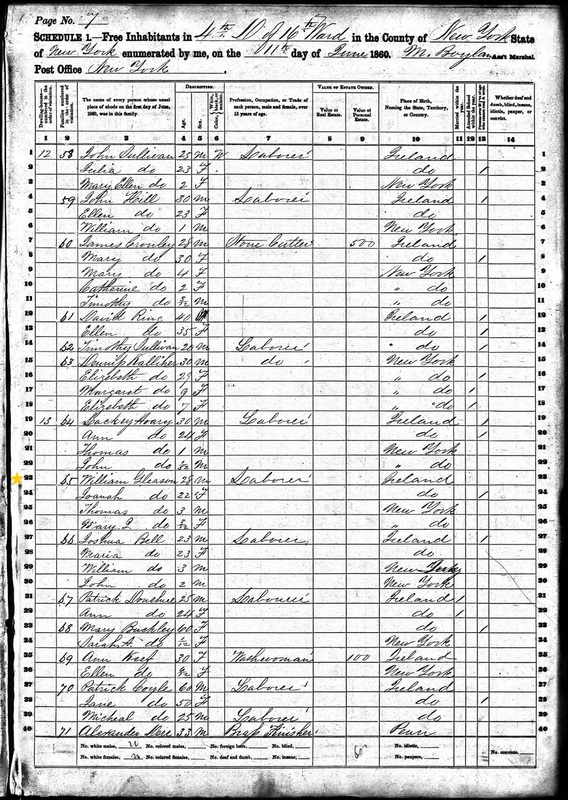 Page No. 7
SCHEDULE 1.—Free Inhabitants in 4th D of 16th Ward in the County of New York State
of New York enumerated by me, on the 11th day of June 1860. M. Boylan Ass't Marshal.
Post Office New York
DESCRIPTION.
VALUE OF ESTATE OWNED.
The name of every person whose usual place of abode on the first day of June, 1860, was in this family.
Age.
Sex.
Profession, Occupation, or Trade of each person, male and female, over 15 years of age.
Value of Real Estate.
Value of Personal Estate.
Place of Birth, Naming the State, Territory, or Country.
Whether deaf and dumb, blind, insane, idiotic, pauper, or convict.
1 2 3 4 5 6 7 8 9 10 11 12 13 14
1 12 58 John Sullivan 25 M W Laborer Ireland 1
2 Julia do 23 F do 1 2
3 Mary Ellen do 2 F New York 3
4 59 John Hill 30 M Laborer Ireland 1 4
5 Ellen do 23 F do 5
6 William do 1 M New York 6
7 60 James Crowley 28 M Stone Cutter 500 Ireland 7
8 Mary do 30 F do 1 8
9 Mary do 4 F New York 9
10 Catherine do 2 F " do 10
11 Timothy do M " do 11
12 61 David Ring 40 Ireland 1 12
13 Ellen do 35 F do 1 13
14 62 Timothy Sullivan 20 M Laborer do 1 14
15 63 30 M do New York 15
16 Elizabeth do 29 F " do 1 16
17 Margaret do 9 F " do 1 17
18 Elizabeth do 7 F " do 1 18
19 13 64 30 M Laborer Ireland 1 19
20 Ann do 24 F do 1 20
21 Thomas do 1 M New York 21
22 John do M " do 22
23 65 William Gleason 28 M Laborer Ireland 23
24 Joanah do 22 F do 1 24
25 Thomas do 3 M New York 25
26 Mary J. do F " do 26
27 66 Joshua Bell 23 M Laborer Ireland 1 27
28 Maria do 23 F do 28
29 William do 3 M New York 29
30 John do 2 M New York 30
31 67 Patrick 25 M Labourer Ireland 1 31
32 Ann do 24 F do 1 32
33 68 Mary Buckley 60 F do 1 33
34 Sarah A do F New York 34
35 69 Ann 30 F Washwoman 100 Ireland 35
36 Ellen do F New York 36
37 70 Patrick Coyle 60 M Laborer Ireland 37
38 Jane do 50 F do 1 38
39 Micheal do 25 M Laborer do 39
40 71 Alexander 33 M Brass Finisher 40
No. white males, No. colored males, No. foreign born, No. blind, No. idiotic, No. convicts,
No. white females, No. colored females, No. deaf and dumb, No. insane, No. paupers,